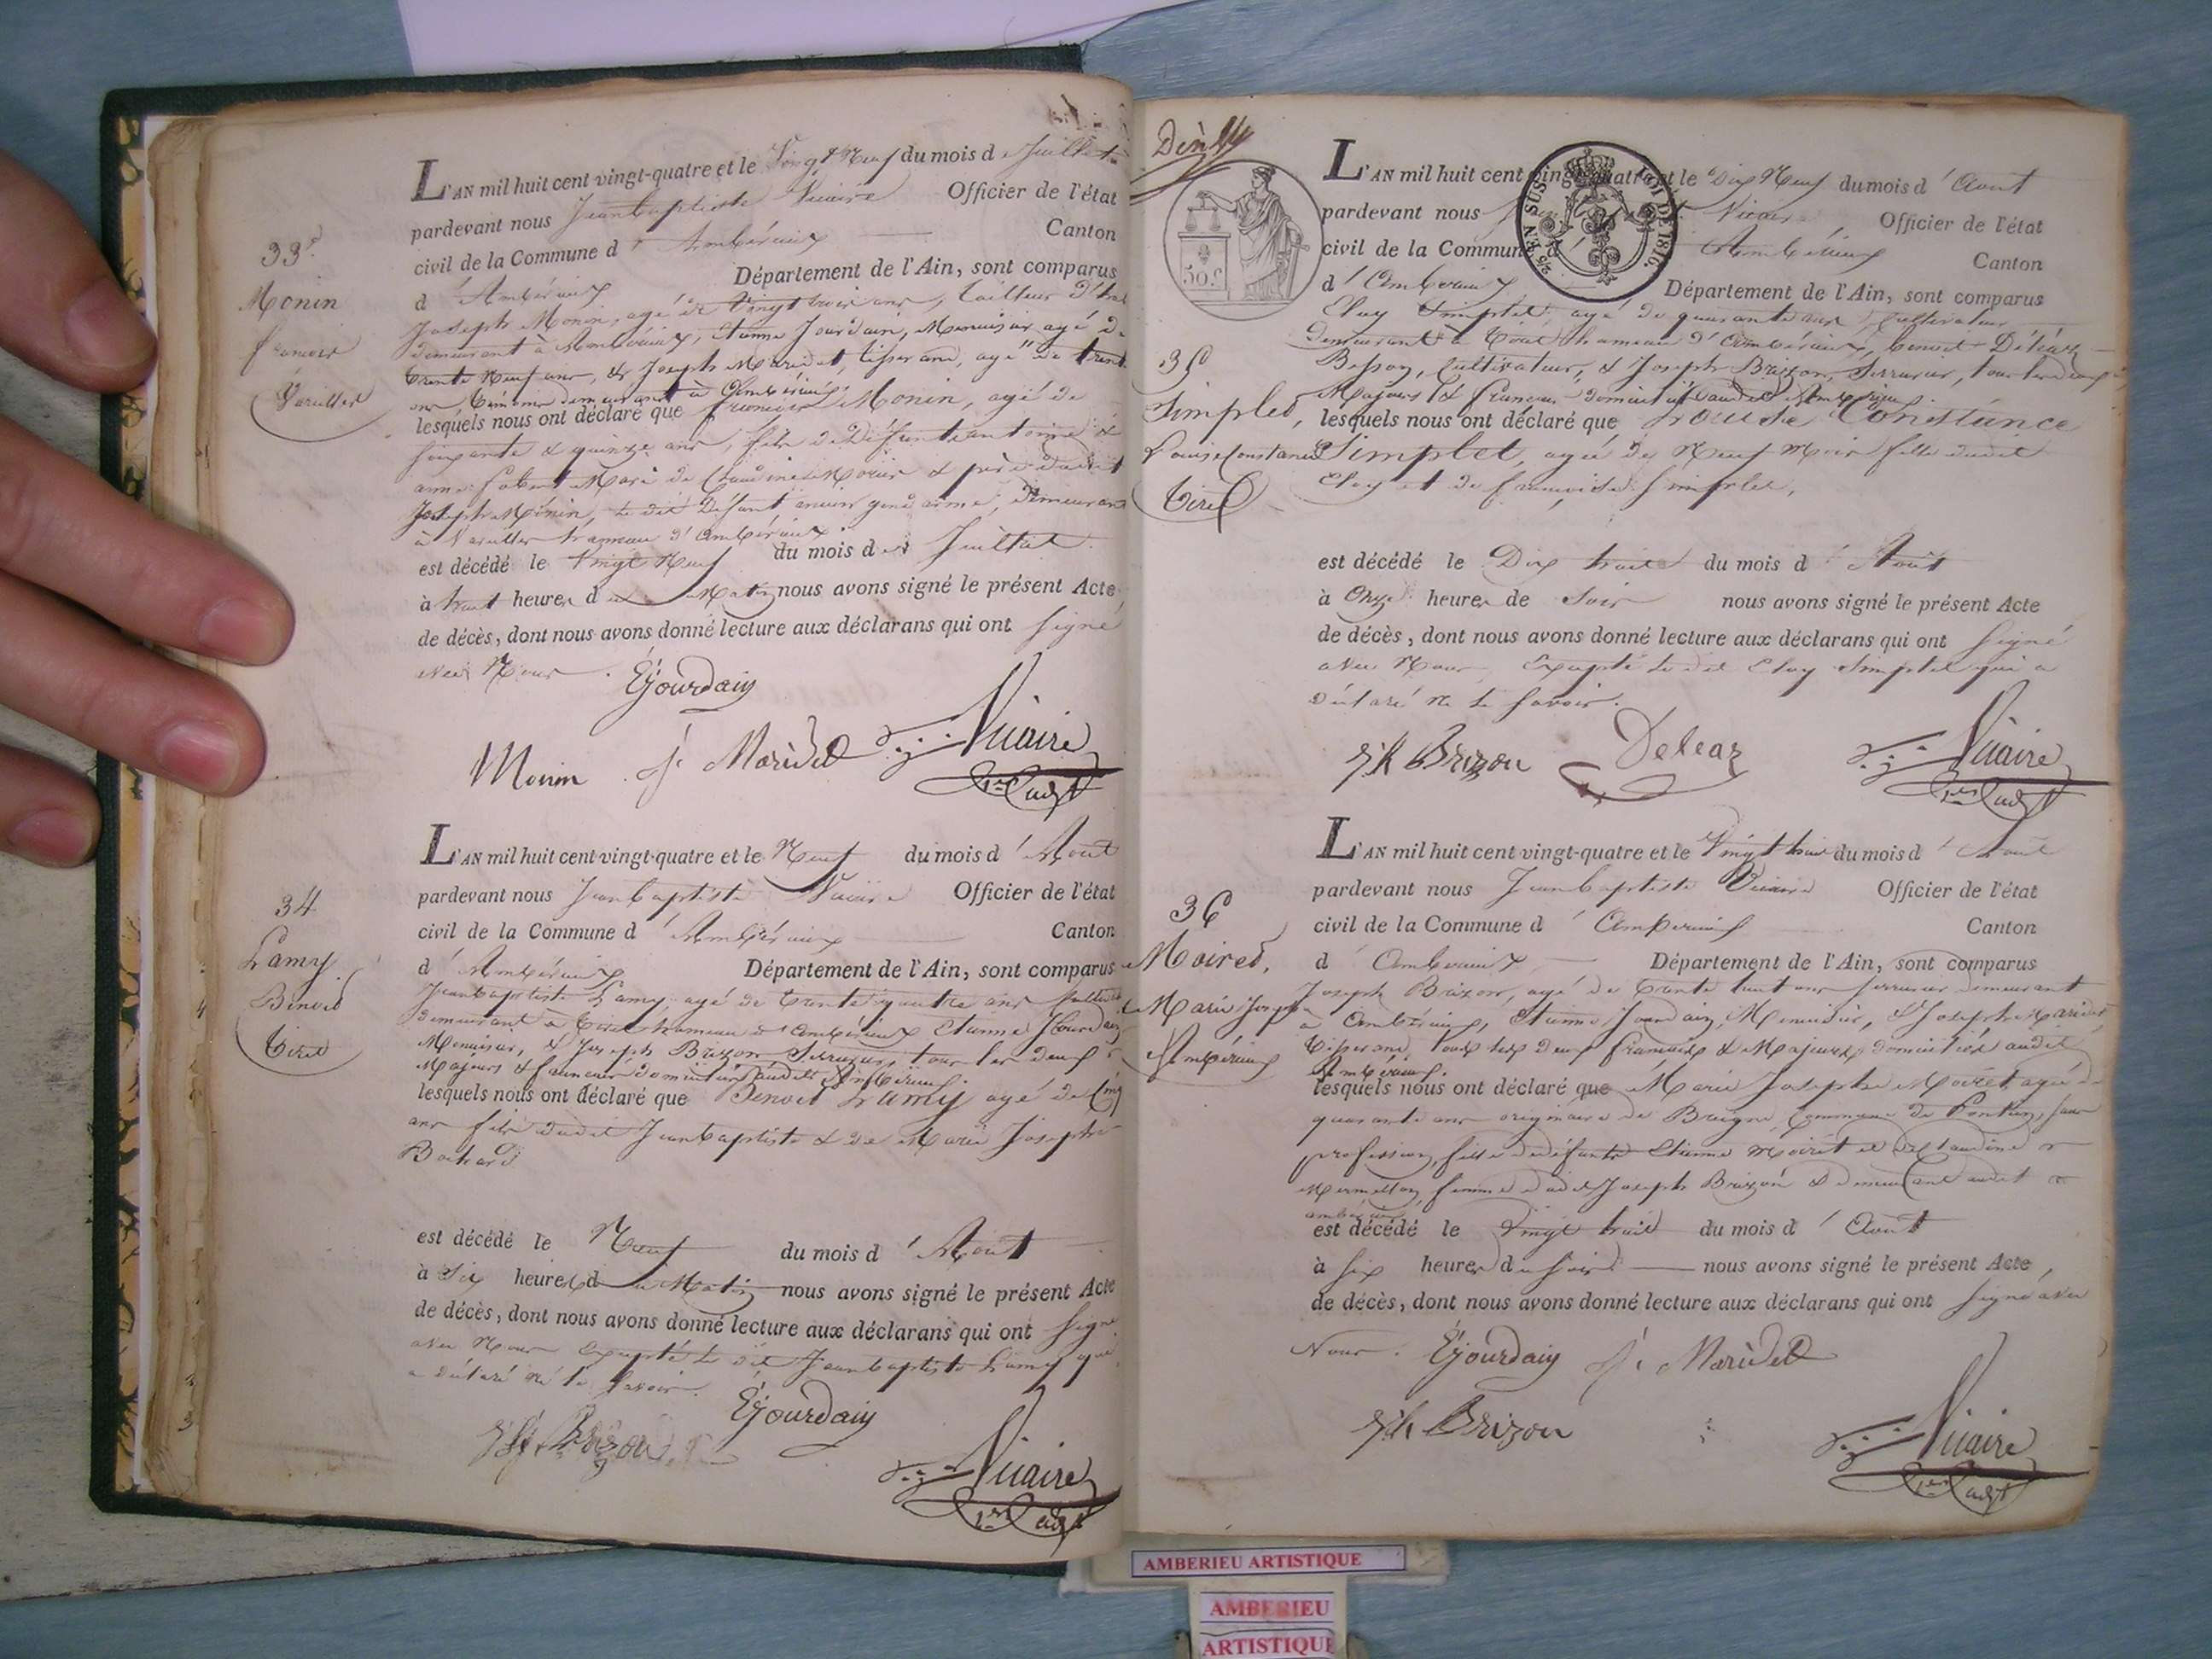 33e
Monin
françois
Vareilles
L'AN mil huit cent vingt-quatre et le Vingt Neuf du mois de Juillet
pardevant nous Jean Baptiste Vicaire Officier de l'état
civil de la Commune d' Ambérieux Canton
d' Ambérieux Département de l'Ain, sont comparus
Joseph Monin, agé de Vingt trois ans, tailleur d'
demeurant à Ambérieux, Etienne Jourdain, Menuisier agé de
trente Neuf ans, & Joseph Maridet, tisserand, agé de trente
demeurant à Ambérieux
lesquels nous ont déclaré que françois Monin, agé de
soixante & quinze ans, fils de Défunts antoine &
anne Mari de Claudine & père dudit
Joseph Monin, le dit Défunt ancien gendarme, demeurant
à Vareilles hameau d'Ambérieux
est décédé le Vingt Neuf du mois de Juillet
à huit heures du Matin nous avons signé le présent Acte
de décès, dont nous avons donné lecture aux déclarans qui ont signé
avec Nous.
EJourdain
Monin J. Maridet Vicaire
34
Lamy
Benoit
Tiret
L'AN mil huit cent vingt-quatre et le Neuf du mois d' Aout
pardevant nous Jean baptiste Vicaire Officier de l'état
civil de la Commune d' Ambérieux Canton
d' Ambérieux Département de l'Ain, sont comparus
Jean baptiste Lamy, agé de trente quatre ans
demeurant à Tiret hameau d'Ambérieux Etienne Jourdain
Menuisier, & Joseph Brizon Serrurier, tous les deux
Majeurs & francais domiciliés audit Ambérieux.
lesquels nous ont déclaré que Benoit Lamy agé de Cinq
ans fils dudit Jean baptiste & de Marie Josephte
est décédé le Neuf du mois d' Aout
à Six heures du Matin nous avons signé le présent Acte
de décès, dont nous avons donné lecture aux déclarans qui ont signé
avec Nous Excepté le dit Jean baptiste Lamy qui
a déclaré ne le savoir.
EJourdain
Jh Brizon
Vicaire
35
Simplet,
Louise Constance
Tiret
50 c.
LOI DE 1816.
L'AN mil huit cent vingt-quatre et le Dix Neuf du mois d' Aout
pardevant nous Vicaire Officier de l'état
civil de la Commune d' Ambérieux Canton
d' Ambérieux Département de l'Ain, sont comparus
Eloy Simplet, agé de quarante ans, Cultivateur
demeurant à Tiret hameau d'Ambérieux, benoit Déléaz
Besson, Cultivateur, & Joseph Brizon, Serrurier, tous les deux
Majeurs & francais domiciliés audit Ambérieux
lesquels nous ont déclaré que Louise Constance
Simplet, agée de Neuf Mois fille dudit
Eloy et de françoise Simplet,
est décédé le Dix huit du mois d' Août
à Onze heures de Soir nous avons signé le présent Acte
de décès, dont nous avons donné lecture aux déclarans qui ont signé
avec Nous, Excepté le dit Eloy Simplet qui a
déclaré ne le savoir.
Jh Brizon Deleaz Vicaire
36
Moiret,
Marie Josephte
Ambérieux
L'AN mil huit cent vingt-quatre et le Vingt huit du mois d' Aout
pardevant nous Jean baptiste Vicaire Officier de l'état
civil de la Commune d' Ambérieux Canton
d' Ambérieux Département de l'Ain, sont comparus
Joseph Brizon, agé de trente huit ans serrurier demeurant
à Ambérieux, Etienne Jourdain, Menuisier, & Joseph Maridet
tisserand, tous les deux francais & Majeurs, domiciliés audit
Ambérieux.
lesquels nous ont déclaré que Marie Josephte Moiret agée de
quarante ans originaire de Commune de sans
profession, fille de défunts Etienne Moiret et de Claudine
Mermillon, femme dudit Joseph Brizon & demeurant audit
ambérieux
est décédé le Vingt huit du mois d' Août
à six heures du soir nous avons signé le présent Acte
de décès, dont nous avons donné lecture aux déclarans qui ont signé avec
Nous. EJourdain J. Maridet
Jh Brizon
Vicaire
AMBERIEU ARTISTIQUE
AMBERIEU
ARTISTIQUE